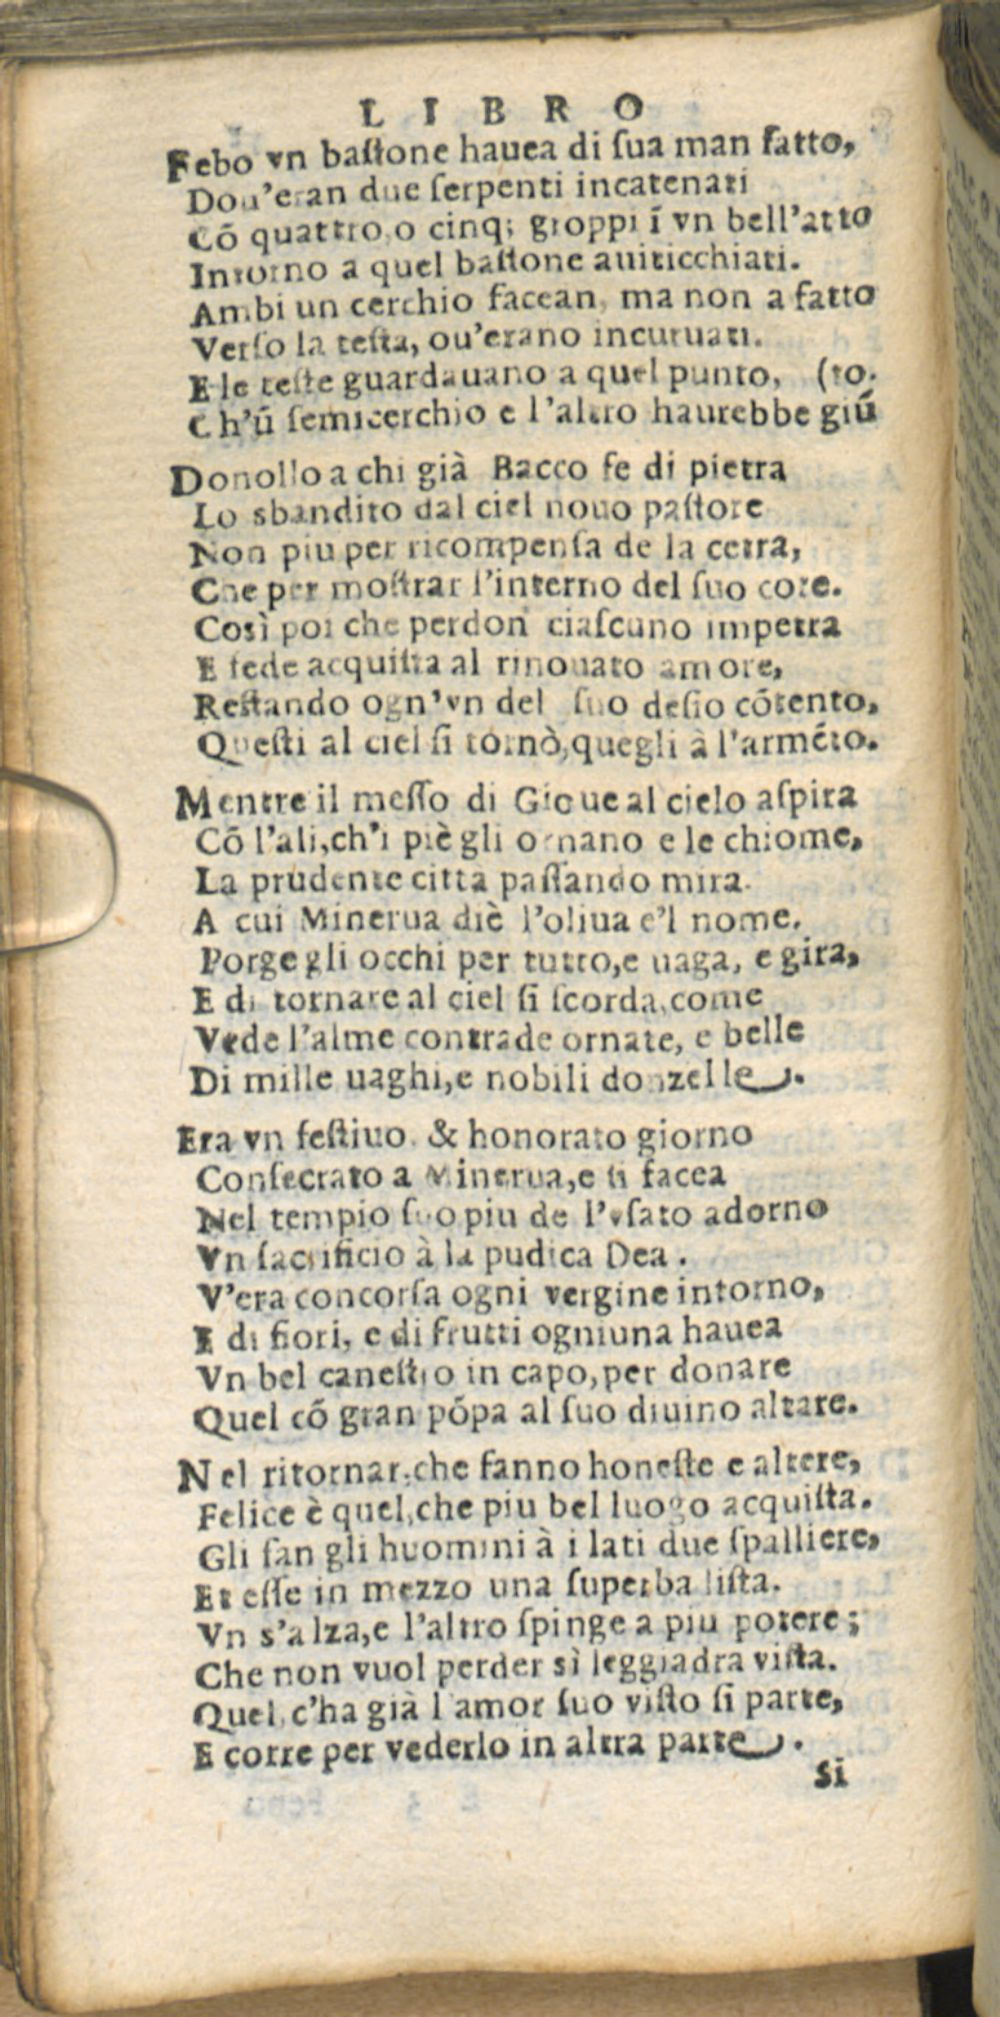 LIBRO
Febo vn baſtone hauea di ſua man fatto,
Dou'eran due ſerpenti incatenati
Cō quattro,o cinq; groppi ī vn bell'atto
Intorno a quel baſtone auiticchiati.
Ambi un cerchio facean, ma non a fatto
Verſo la teſta, ou'erano incuruati.
E le teſte guardauano a quel punto, (to.
Ch'ū ſemicerchio e l'altro haurebbe giū
Donollo a chi già Bacco fe di pietra
Lo sbandito dal ciel nouo paſtore
Non piu per ricompenſa de la cetra,
Che per moſtrar l'interno del ſuo core.
Così poi che perdon ciaſcuno impetra
E fede acquiſta al rinouato amore,
Reſtando ogn'vn del ſuo deſio cōtento,
Queſti al ciel ſi tornò,quegli à l'armēto.
Mentre il meſſo di Gioue al cielo aſpira
Cō l'ali,ch'i piè gli ornano e le chiome,
La prudente citta paſſando mira.
A cui Minerua diè l'oliua e'l nome.
Porge gli occhi per tutto,e uaga, e gira,
E di tornare al ciel ſi ſcorda,come
Vede l'alme contrade ornate, e belle
Di mille uaghi,e nobili donzelle.
Era vn feſtiuo. & honorato giorno
Conſecrato a Minerua,e ſi facea
Nel tempio ſuo piu de l'vſato adorno
Vn ſacrificio à la pudica Dea.
V'era concorſa ogni vergine intorno,
E di fiori, e di frutti ogniuna hauea
Vn bel caneſtro in capo,per donare
Quel cō gran pōpa al ſuo diuino altare.
Nel ritornar,che fanno honeſte e altere,
Felice è quel,che piu bel luogo acquiſta.
Gli fan gli huomini à i lati due ſpalliere,
Et eſſe in mezzo una ſuperba liſta.
Vn s'alza,e l'altro ſpinge a piu potere;
Che non vuol perder sì leggiadra viſta.
Quel,c'ha già l'amor ſuo viſto ſi parte,
E corre per vederlo in altra parte.
Si